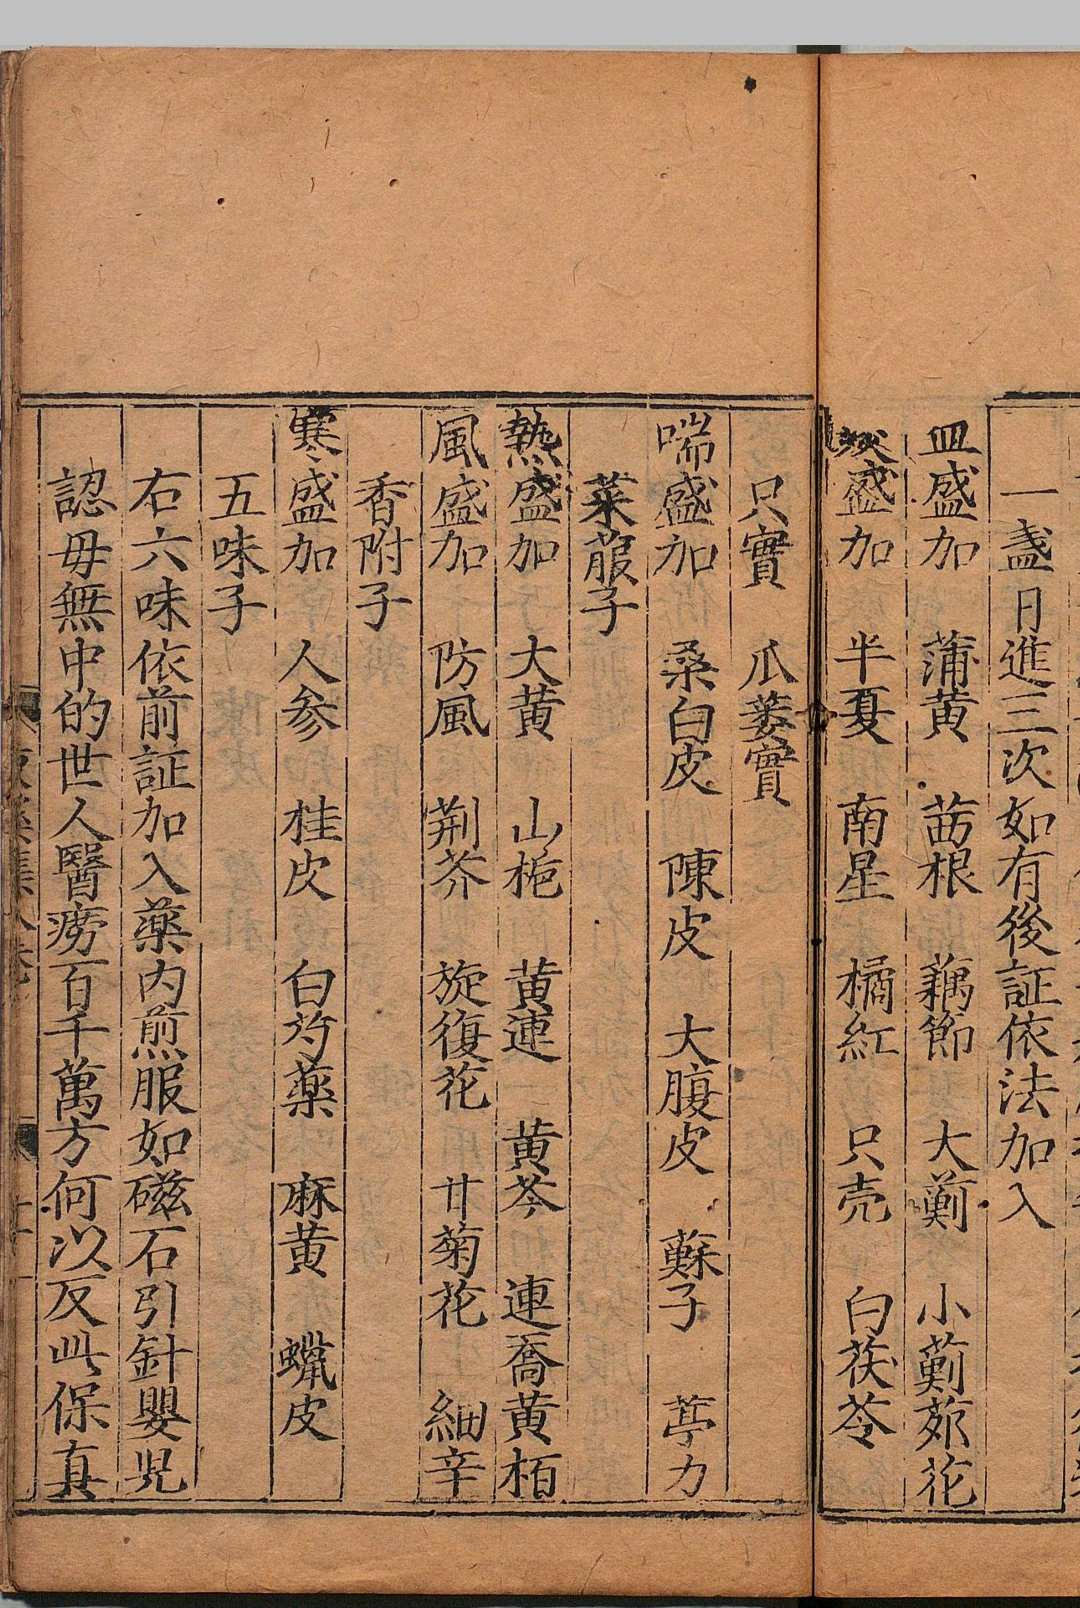 一盞日進三次如有後証依法加入
血盛加　蒲黄　茜根　藕節　大薊　小薊茆花
盛加　半夏　南星　橘紅　只壳　白茯苓
只實　瓜蒌實
喘盛加　桑白皮　陳皮　大腹皮　蘇子　葶力
菜菔子
熱盛加　大黄　山梔　黄連　黄芩　連喬黄栢
風盛加　防風　荆芥　旋復花　甘菊花　細辛
香附子
寒盛加　人参　桂皮　白芍薬　麻黄　蠟皮
五味子
右六味依前証加入薬内煎服如磁石引針嬰児
認毋無中的世人醫痨百千萬方何以反此保真